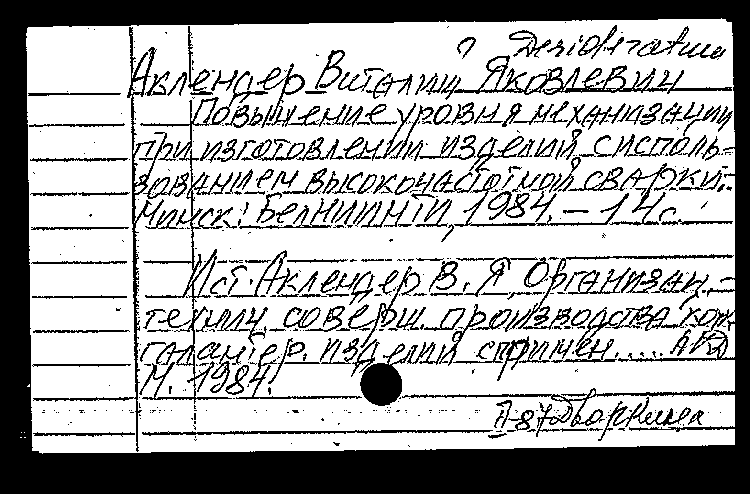 ? Desideratum
Аклендер Виталий Яковлевич
Повышение уровня механизации
при изготовлении изделий с исполь-
зованием высокочастотной сварки.-
Минск: БелНИИНТИ, 1984. - 14 с.
Ист. Аклендер В. Я. Организац.-
технич. соверш. производства кож.
галантер. изделий с примен..... АКД
М. 1984.
II-87 Дворкина